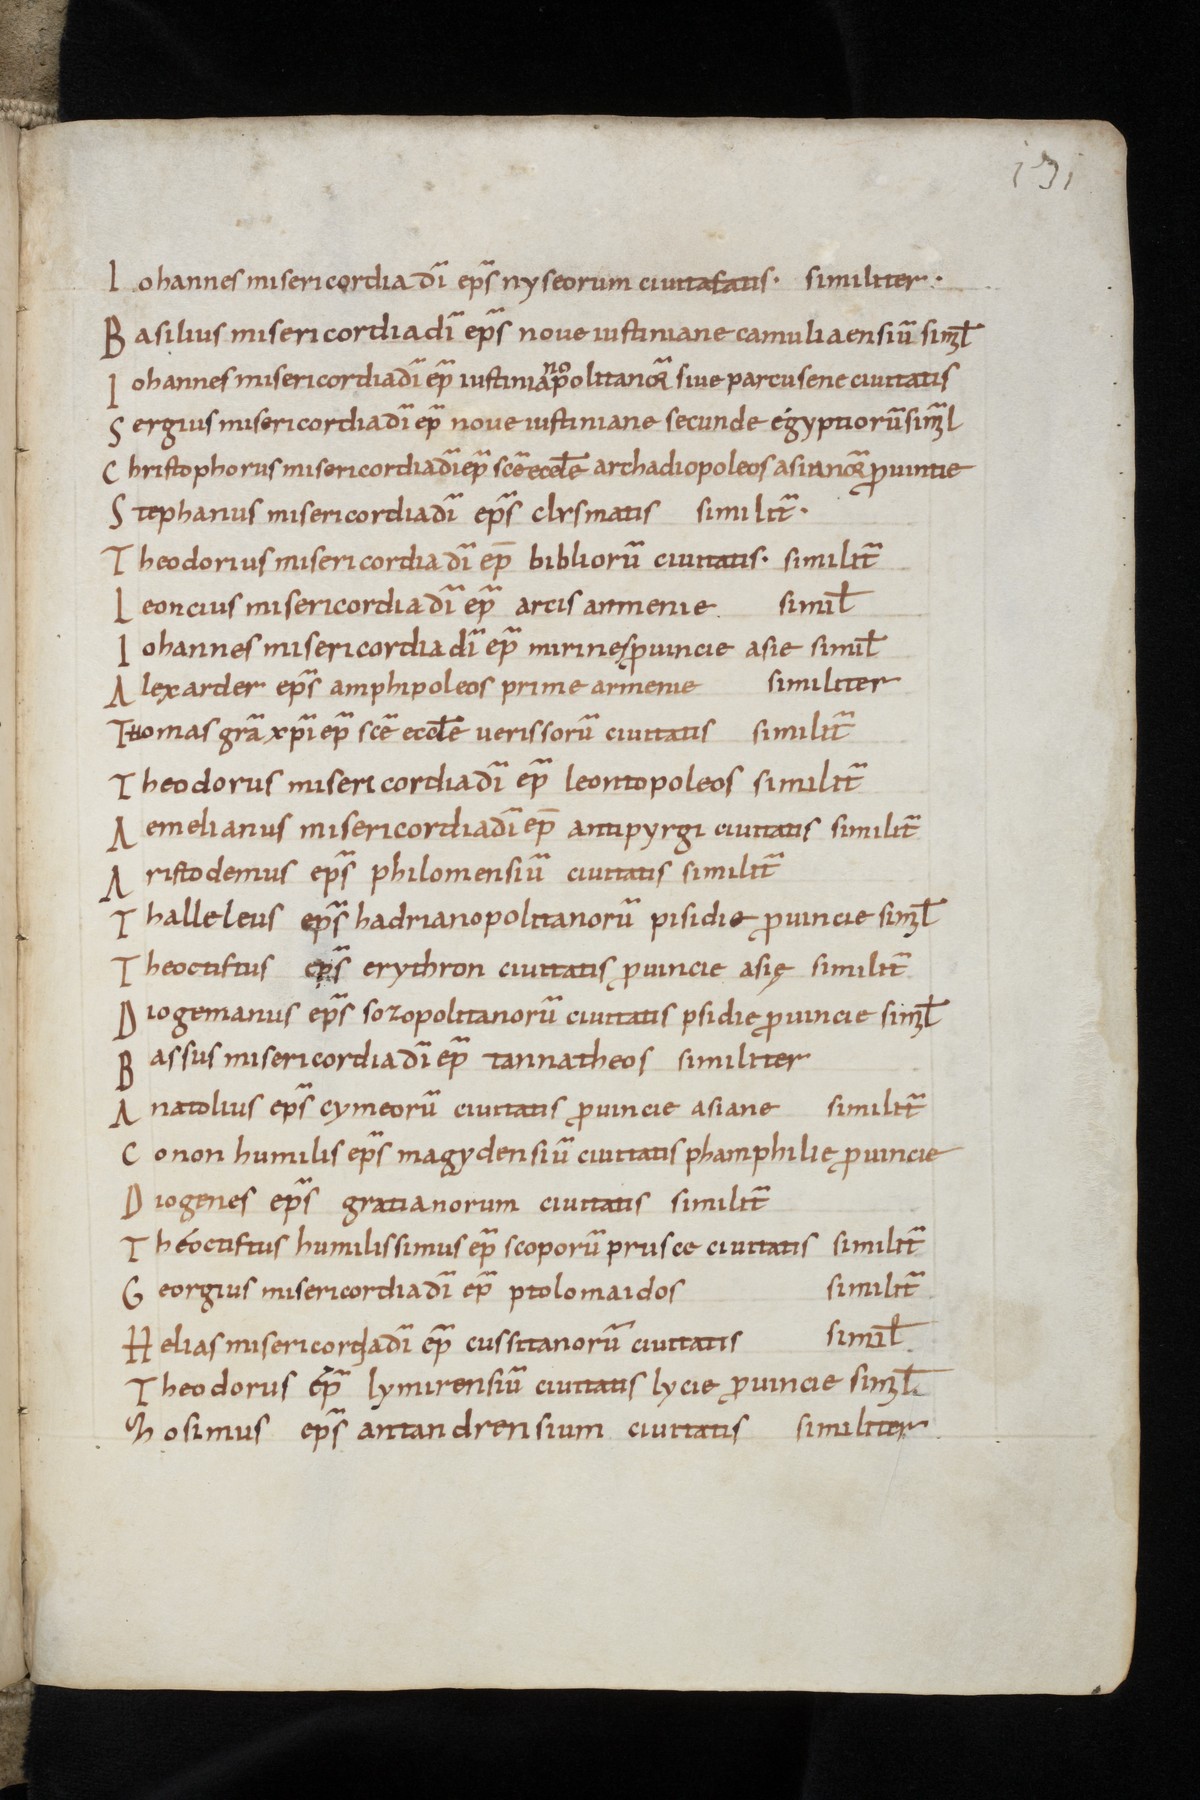 151
Iohannes misericordia dī ep̄s nyseorum ciuitatatis· similiter·
Basilius misericordia dī ep̄s noue iustiniane camuliaensiū simł
Iohannes misericordia dī ep̄ iustinianopolitanoꝝ siue parcusene ciuitatis
Sergius misericordia dī ep̄ noue iustiniane secunde egyptiorū simł
Christophorus misericordia dī ep̄ scē eccłe archadiopoleos asianoꝝ ꝓuintie
Stephanus misericordia dī ep̄s clrsmatis similit̄·
Theodorius misericordia dī ep̄ bibliorū ciuitatis· similit̄
Leoncius misericordia dī ep̄ arcis armenie similł
Iohannes misericordia dī ep̄ mirines ꝓuincie asie similł
Alexarder ep̄s amphipoleos prime armenie similiter
Thomas grā xp̄i ep̄ scē eccłe uerissorū ciuitatis similit̄
Theodorus misericordia dī ep̄ leontopoleos similit̄
Aemelianus misericordia dī ep̄ antipyrgi ciuitatis similit̄
Aristodemus ep̄s philomensiū ciuitatis similit̄
Thalleleus ep̄s hadrianopolitanorū pisidie ꝓuincie simł
Theoctistus ep̄s erythron ciuitatis ꝓuincie asię similit̄
Diogemanus ep̄s sozopolitanorū ciuitatis psidie ꝓuincie simł
Bassus misericordia dī ep̄ tannatheos similiter
Anatolius ep̄s cymeorū ciuitatis ꝓuincie asiane similit̄
Conon humilis ep̄s magydensiū ciuitatis phamphilię ꝓuincie
Diogenes ep̄s gratianorum ciuitatis similit̄
Theoctistus humilissimus ep̄ scoporū prusce ciuitatis similit̄
Georgius misericordia dī ep̄ ptolomaidos similit̄
Helias misericordia dī ep̄ cussitanorū ciuitatis similł
Theodorus ep̄ lymirensiū ciuitatis lycie ꝓuincie simł
Zosimus ep̄s antandrensium ciuitatis similiter